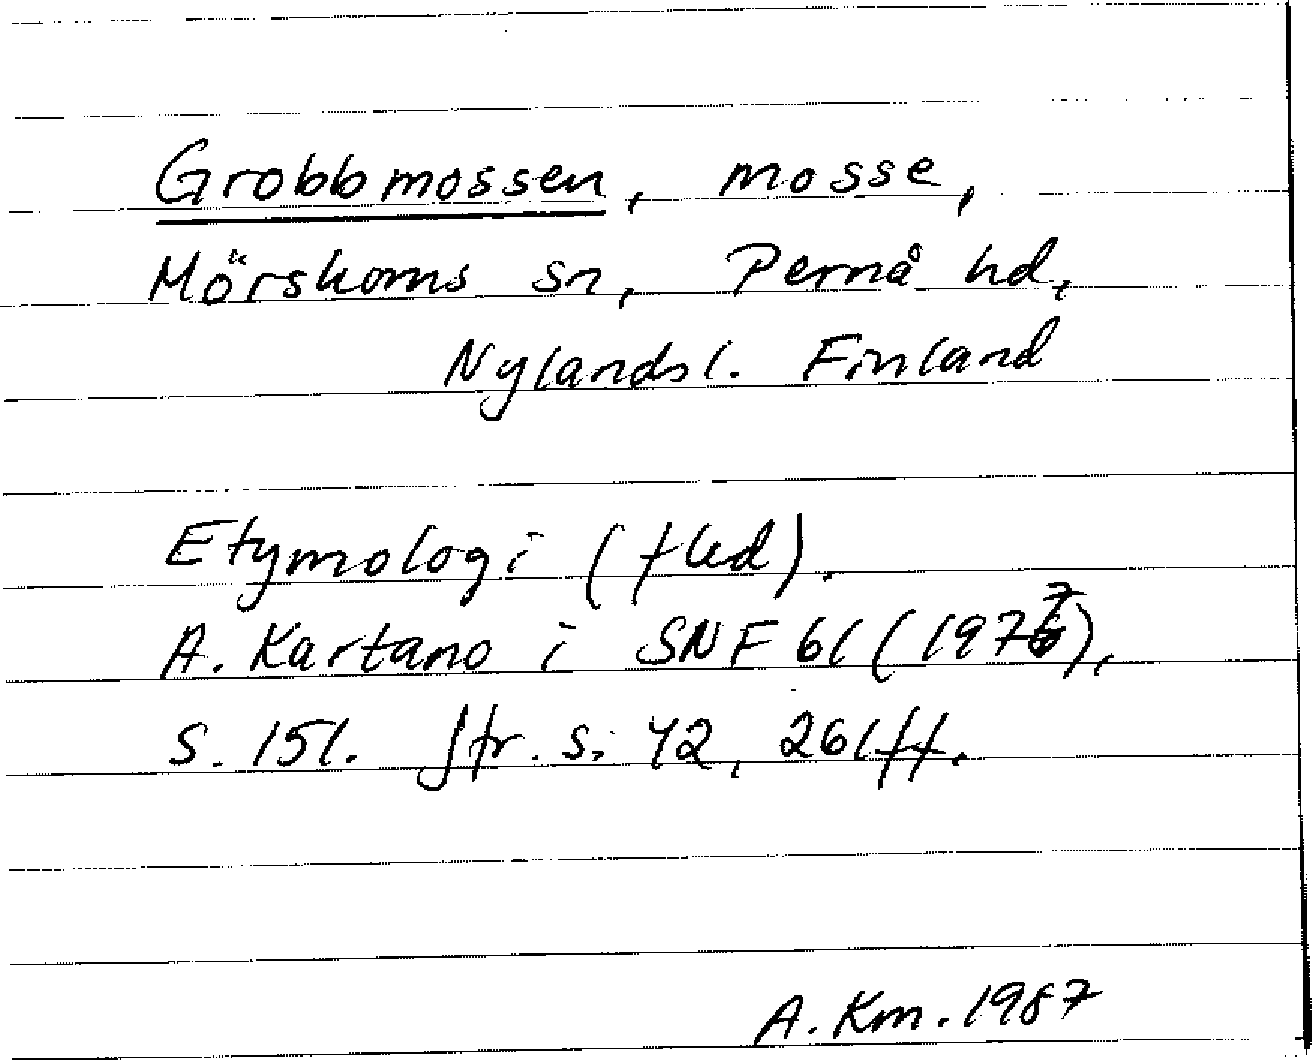 Grobbmossen, mosse,
Mörskoms sn, Pernå hd,
Nylandsl. Finland
Etymologi (fled).
A. Kartano i SNF 61 (1977),
s. 151. Jfr. s. 42, 261 ff.
A. Km. 1987